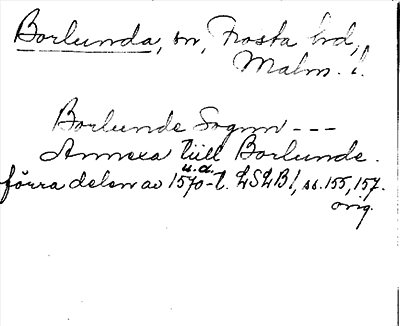 Borlunda, sn, Frosta hd,
Malm. l.
Borlunde Sognn ---
Annexa tiill Borlunde.
u.å.
förra delen av 1570-t. LSLB 1, ss. 155, 157.
orig.